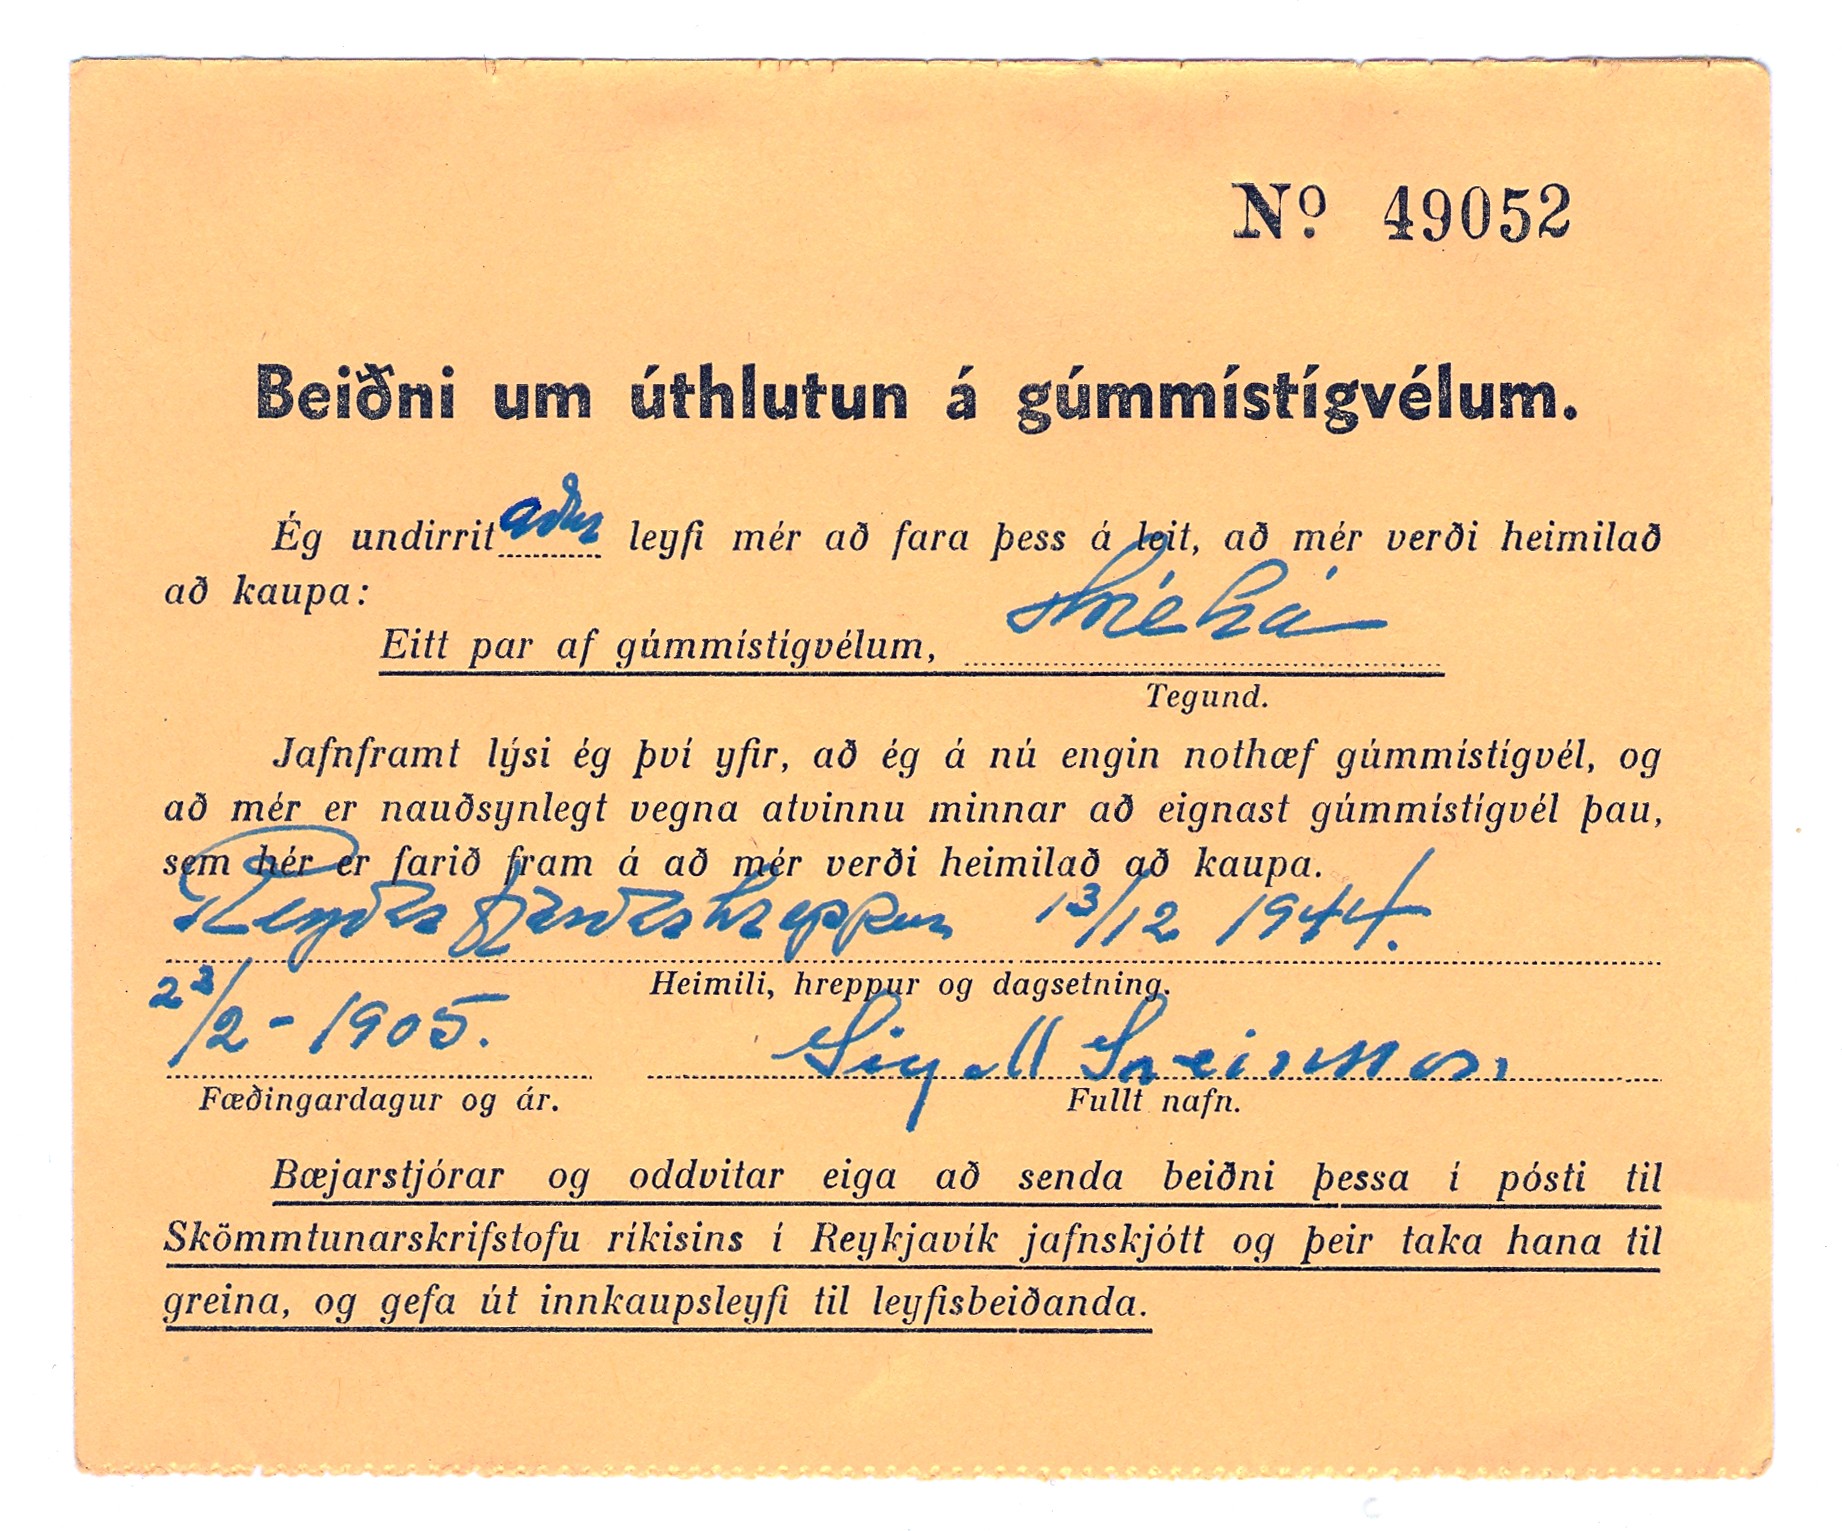 Nº 49052
Beiðni um úthlutun á gúmmístígvélum.
Ég undirritaður leyfi mér að fara þess á leit, að mér verði heimilað
að kaupa:
Eitt par af gúmmístígvélum,
Tegund.
Jafnframt lýsi ég því yfir, að ég á nú engin nothæf gúmmístígvél, og
að mér er nauðsynlegt vegna atvinnu minnar að eignast gúmmístígvél þau,
sem hér er farið fram á að mér verði heimilað að kaupa.
Reyðarfjarðarhreppur 13/12 1944.
Heimili, hreppur og dagsetning.
23/2 - 1905.
Fæðingardagur og ár.
Fullt nafn.
Bæjarstjórar og oddvitar eiga að senda beiðni þessa í pósti til
Skömmtunarskrifstofu ríkisins í Reykjavík jafnskjótt og þeir taka hana til
greina, og gefa út innkaupsleyfi til leyfisbeiðanda.